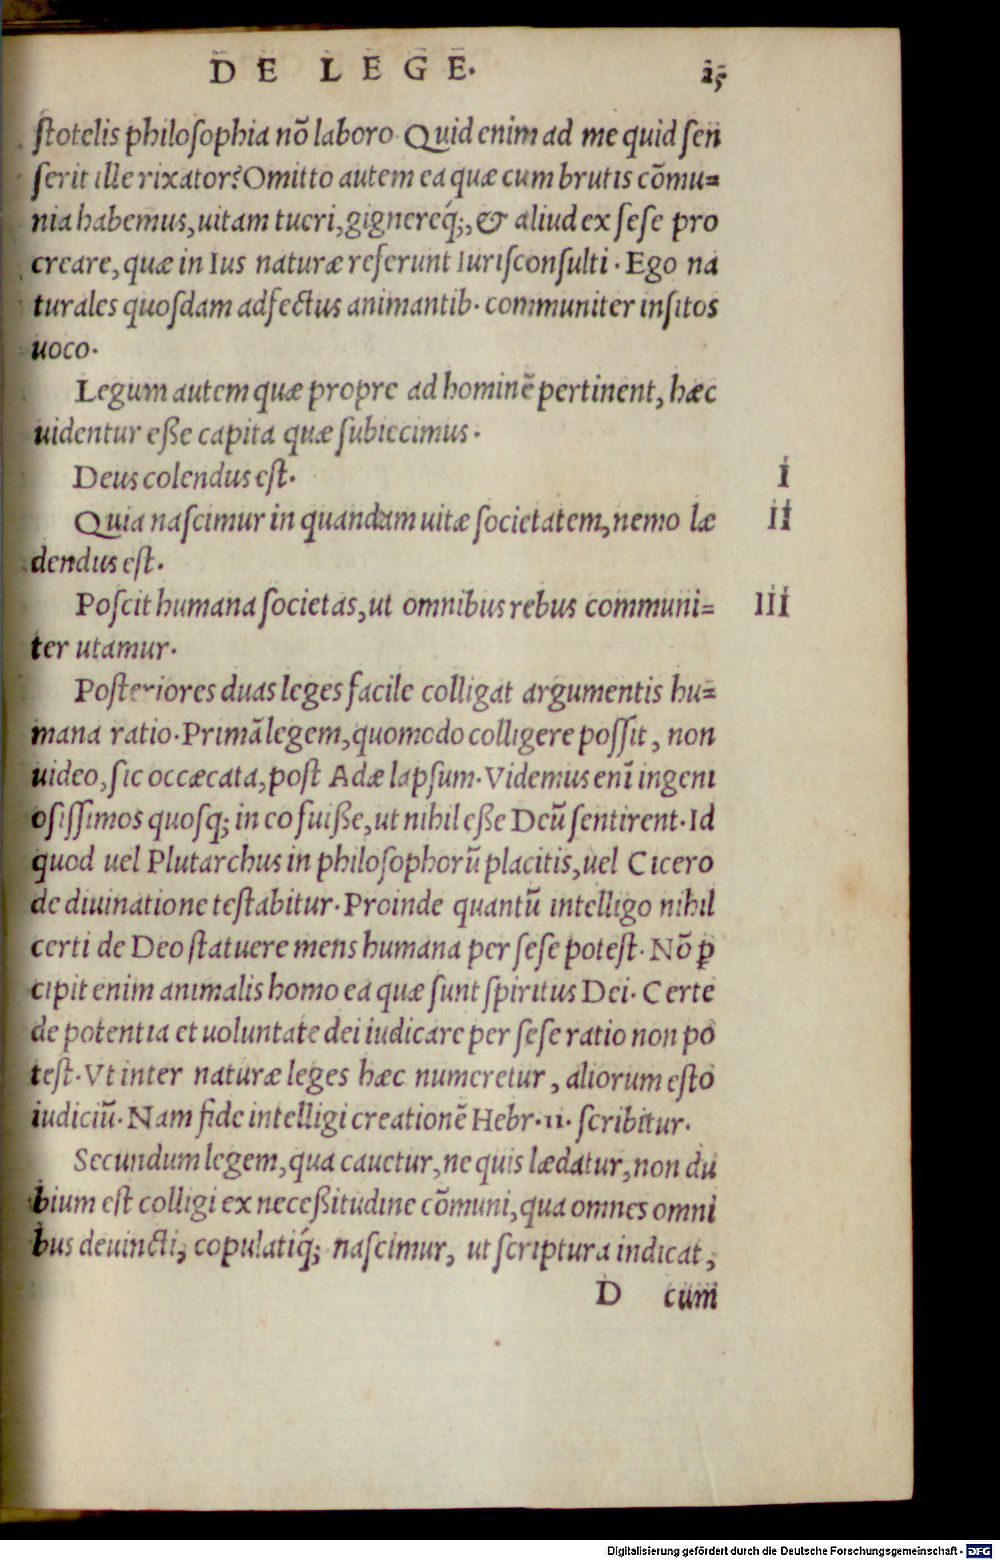 DE LEGE.
25
ſtotelis philoſophia nõ laboro. Quid enim ad me quid ſen
ſerit ille rixator? Omitto autem ea quæ cum brutis cõmu=
nia habemus, uitam tueri, gignereq́;, & aliud ex ſeſe pro
creare, quæ in Ius naturæ referunt Iuriſconſulti. Ego na
turales quoſdam adfectus animantib. communiter inſitos
uoco.
Legum autem quæ propre ad hominẽ pertinent, hæc
uidentur eſſe capita quæ ſubiecimus.
Deus colendus eſt.
I
Quia naſcimur in quandam uitæ ſocietatem, nemo læ
II
dendus eſt.
Poſcit humana ſocietas, ut omnibus rebus communi=
III
ter utamur.
Poſteriores duas leges facile colligat argumentis hu=
mana ratio. Primã legem, quomodo colligere poſſit, non
uideo, ſic occæcata, poſt Adæ lapſum. Videmus enĩ ingeni
oſiſſimos quoſq; in eo fuiſſe, ut nihil eſſe Deũ ſentirent. Id
quod uel Plutarchus in philoſophorũ placitis, uel Cicero
de diuinatione teſtabitur. Proinde quantũ intelligo nihil
certi de Deo ſtatuere mens humana per ſeſe poteſt. Nõ ꝑ
cipit enim animalis homo ea quæ ſunt ſpiritus Dei. Certe
de potentia et uoluntate dei iudicare per ſeſe ratio non po
teſt. Vt inter naturæ leges hæc numeretur, aliorum eſto
iudiciũ. Nam fide intelligi creationẽ Hebr. 11. ſcribitur.
Secundum legem, qua cauetur, ne quis lædatur, non du
bium eſt colligi ex neceſſitudine cõmuni, qua omnes omni
bus deuincti, copulatiq́; naſcimur, ut ſcriptura indicat,
D cum
Digitalisierung gefördert durch die Deutsche Forschungsgemeinschaft - DFG